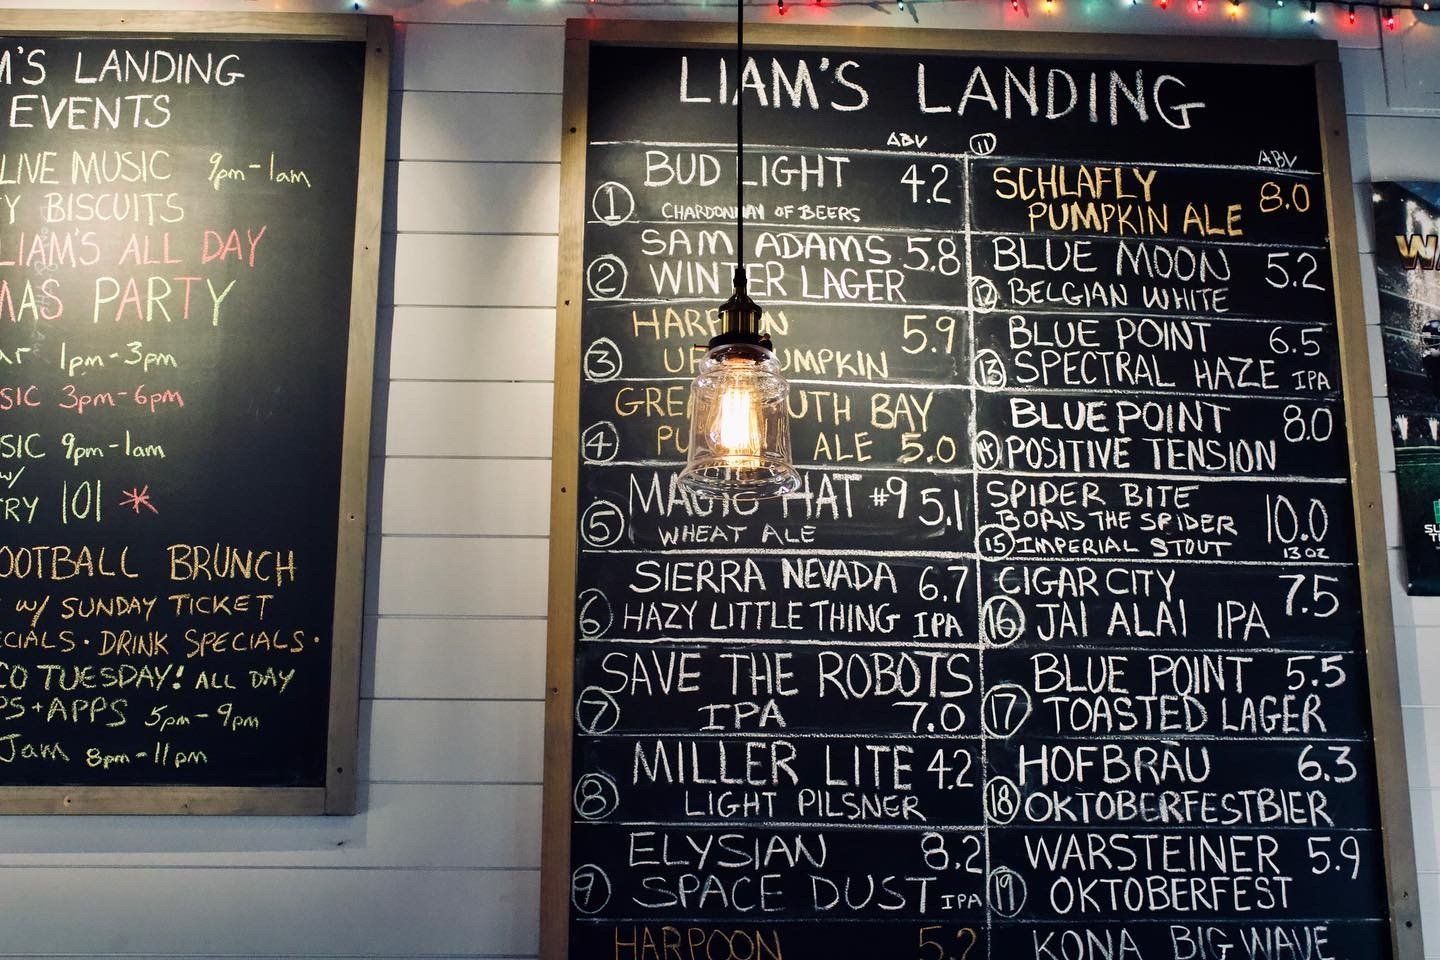 M'S LANDING
EVENTS
LIVE MUSIC 9pm-1am
TY BISCUITS
LIAM'S ALL DAY
MAS PARTY
ar 1pm-3pm
SIC 3pm-6pm
SIC 9pm-1am
w/
TRY 101 *
OOTBALL BRUNCH
w/ SUNDAY TICKET
ECIALS · DRINK SPECIALS ·
CO TUESDAY! ALL DAY
PS+APPS 5pm-9pm
Jam 8pm-11pm
LIAM'S LANDING
ABV
1 BUD LIGHT 4.2
CHARDONNAY OF BEERS
SAM ADAMS 5.8
2 WINTER LAGER
HARPOON 5.9
3 UF PUMPKIN
GRE UTH BAY
4 PU ALE 5.0
MAGIC HAT #9 5.1
5 WHEAT ALE
SIERRA NEVADA 6.7
6 HAZY LITTLE THING IPA
SAVE THE ROBOTS
7 IPA 7.0
MILLER LITE 4.2
8 LIGHT PILSNER
ELYSIAN 8.2
9 SPACE DUST IPA
HARPOON 5.2
11 ABV
SCHLAFLY 8.0
PUMPKIN ALE
BLUE MOON 5.2
12 BELGIAN WHITE
BLUE POINT 6.5
13 SPECTRAL HAZE IPA
BLUE POINT 8.0
14 POSITIVE TENSION
SPIDER BITE 10.0
BORIS THE SPIDER
15 IMPERIAL STOUT 13 OZ
CIGAR CITY 7.5
16 JAI ALAI IPA
BLUE POINT 5.5
17 TOASTED LAGER
HOFBRÄU 6.3
18 OKTOBERFESTBIER
WARSTEINER 5.9
19 OKTOBERFEST
KONA BIG WAVE